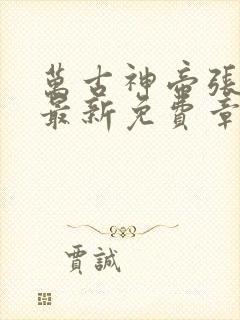 萬古神帝張
最新免費章
賈誠